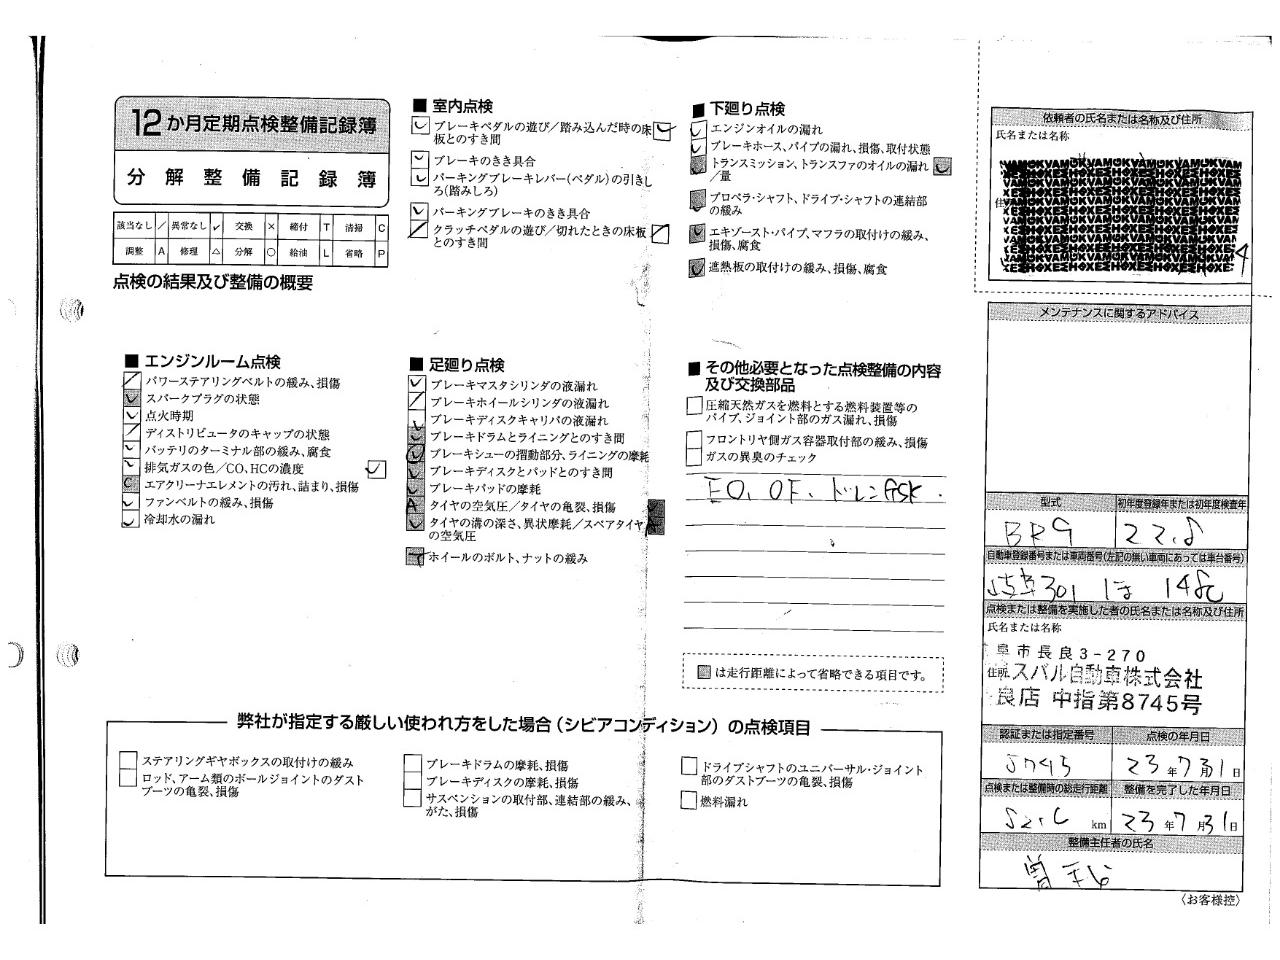 12か月定期点検整備記録簿
分解整備記録簿
該当なし ／ 異常なし ✓ 交換 × 締付 T 清掃 C
調整 A 修理 △ 分解 ○ 給油 L 省略 P
点検の結果及び整備の概要
■ エンジンルーム点検
パワーステアリングベルトの緩み、損傷
スパークプラグの状態
点火時期
ディストリビュータのキャップの状態
バッテリのターミナル部の緩み、腐食
排気ガスの色／CO、HCの濃度
エアクリーナエレメントの汚れ、詰まり、損傷
ファンベルトの緩み、損傷
冷却水の漏れ
■ 室内点検
ブレーキペダルの遊び／踏み込んだ時の床
板とのすき間
ブレーキのきき具合
パーキングブレーキレバー(ペダル)の引きし
ろ(踏みしろ)
パーキングブレーキのきき具合
クラッチペダルの遊び／切れたときの床板
とのすき間
■ 足廻り点検
ブレーキマスタシリンダの液漏れ
ブレーキホイールシリンダの液漏れ
ブレーキディスクキャリパの液漏れ
ブレーキドラムとライニングとのすき間
ブレーキシューの摺動部分、ライニングの摩耗
ブレーキディスクとパッドとのすき間
ブレーキパッドの摩耗
タイヤの空気圧／タイヤの亀裂、損傷
タイヤの溝の深さ、異状摩耗／スペアタイヤ
の空気圧
ホイールのボルト、ナットの緩み
■ 下廻り点検
エンジンオイルの漏れ
ブレーキホース、パイプの漏れ、損傷、取付状態
トランスミッション、トランスファのオイルの漏れ
／量
プロペラ・シャフト、ドライブ・シャフトの連結部
の緩み
エキゾースト・パイプ、マフラの取付けの緩み、
損傷、腐食
遮熱板の取付けの緩み、損傷、腐食
■ その他必要となった点検整備の内容
及び交換部品
圧縮天然ガスを燃料とする燃料装置等の
パイプ、ジョイント部のガス漏れ、損傷
フロントリヤ側ガス容器取付部の緩み、損傷
ガスの異臭のチェック
EO, OF、ドレンGSK.
は走行距離によって省略できる項目です。
弊社が指定する厳しい使われ方をした場合(シビアコンディション)の点検項目
ステアリングギヤボックスの取付けの緩み
ロッド、アーム類のボールジョイントのダスト
ブーツの亀裂、損傷
ブレーキドラムの摩耗、損傷
ブレーキディスクの摩耗、損傷
サスペンションの取付部、連結部の緩み、
がた、損傷
ドライブシャフトのユニバーサル・ジョイント
部のダストブーツの亀裂、損傷
燃料漏れ
依頼者の氏名または名称及び住所
氏名または名称
メンテナンスに関するアドバイス
型式 初年度登録年または初年度検査年
BR9 22.8
自動車登録番号または車両番号(左記の無い車両にあっては車台番号)
301 ほ
点検または整備を実施した者の氏名または名称及び住所
氏名または名称
阜市長良3-270
住所 スバル自動車株式会社
良店 中指第8745号
認証または指定番号 点検の年月日
8745 23年7月31日
点検または整備時の総走行距離 整備を完了した年月日
km 23年7月31日
整備主任者の氏名
〈お客様控〉